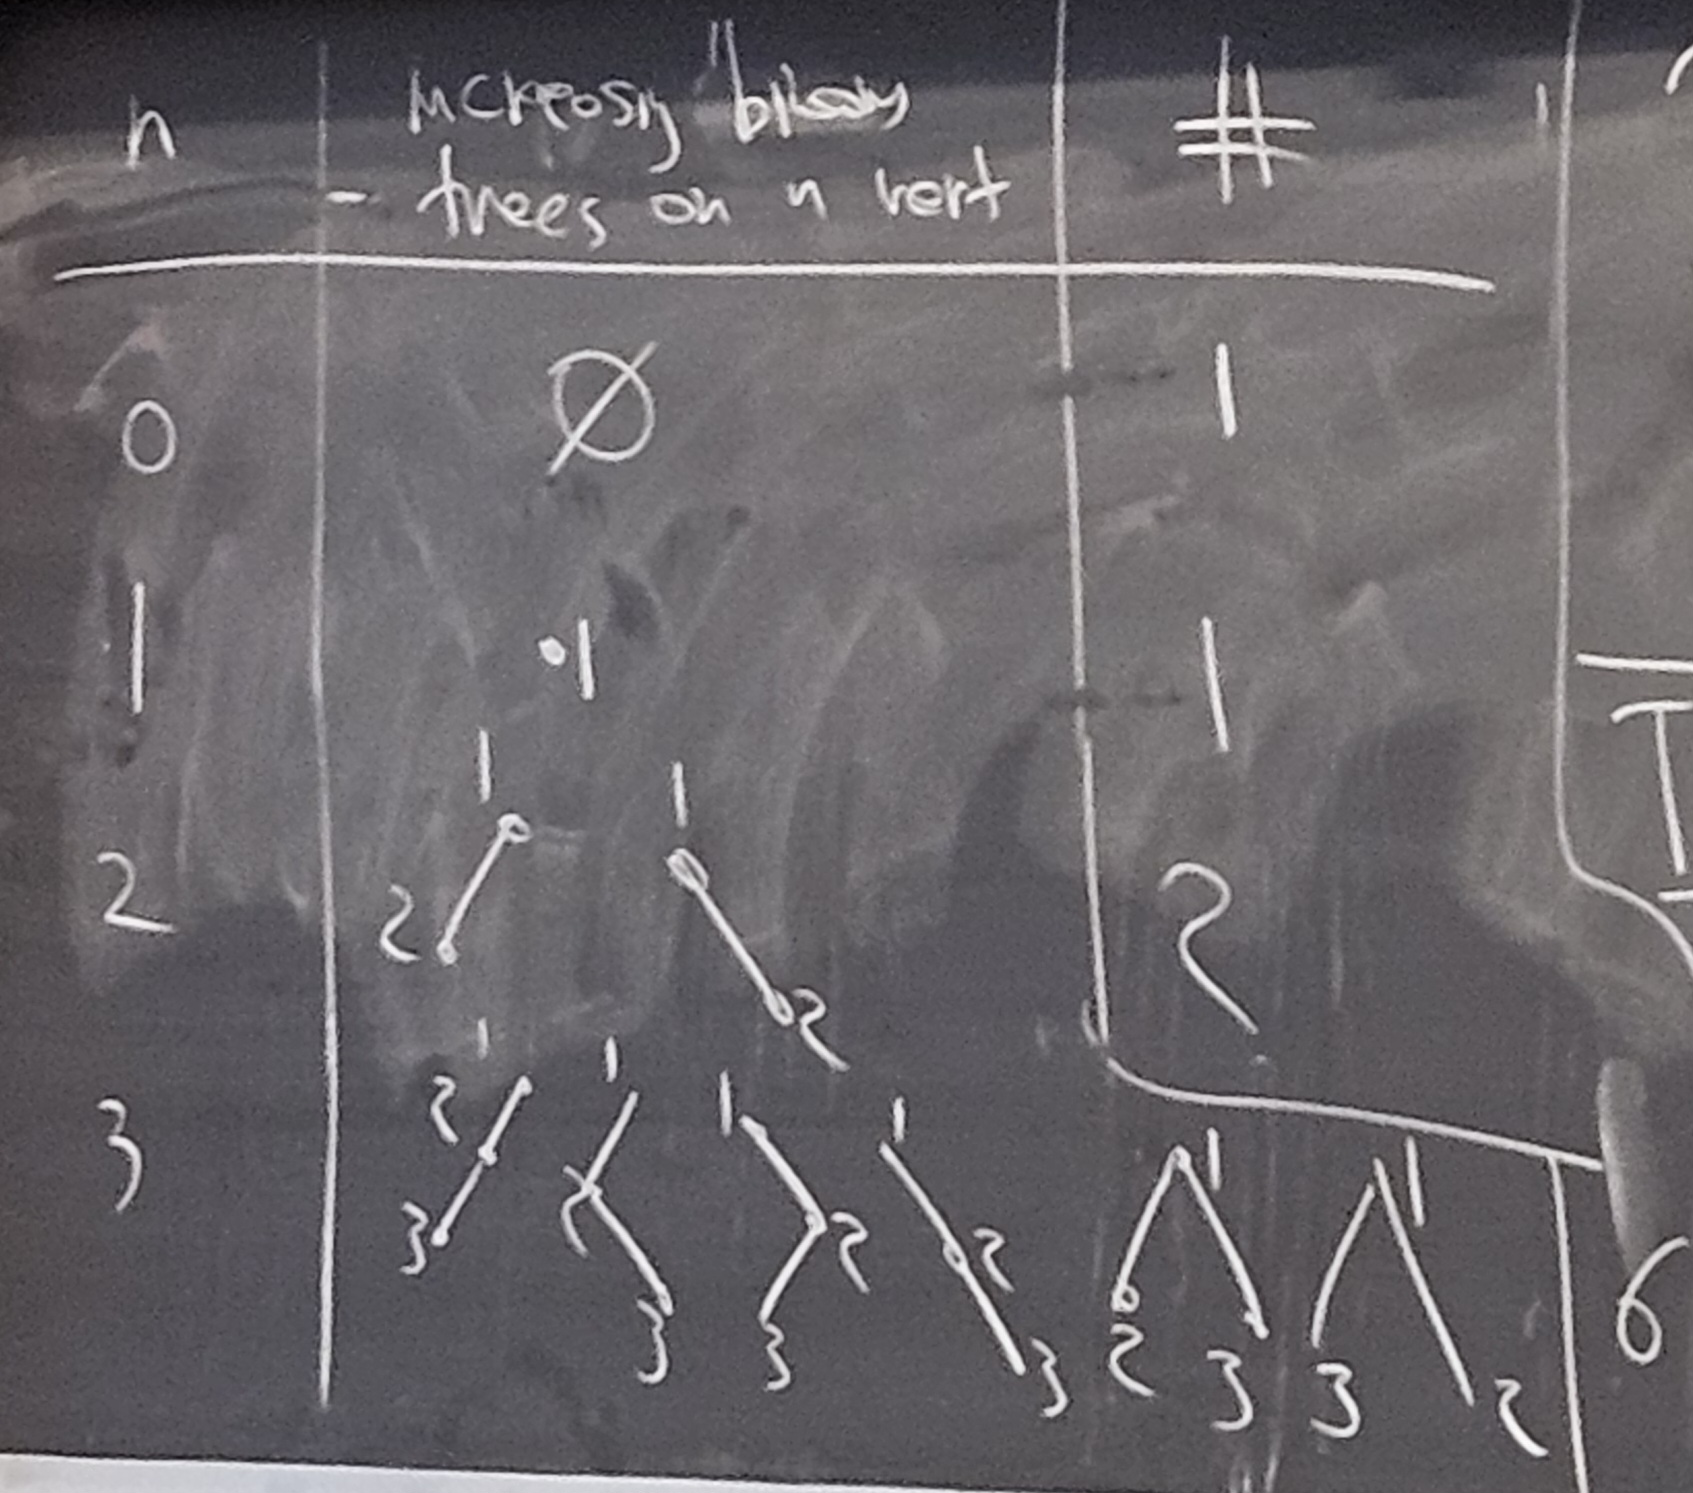 n increasing binary #
- trees on n vert
0 Ø 1
1 ·1 1
1 1
2 2 2 2
1 1 1 1 1 1
3 2 2 2 2 6
3 3 3 3 2 3 3 2